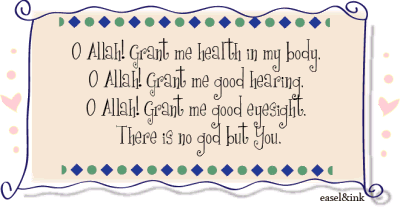 O Allah! Grant me health in my body.
O Allah! Grant me good hearing.
O Allah! Grant me good eyesight.
There is no god but You.
easel&ink